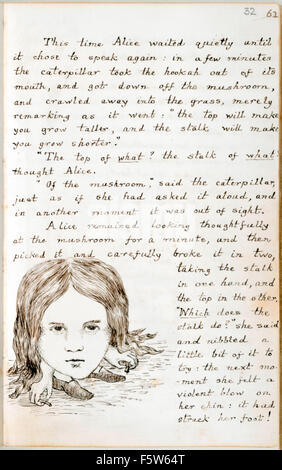 32 62
This time Alice waited quietly until
it chose to speak again: in a few minutes
the caterpillar took the hookah out of its
mouth, and got down off the mushroom,
and crawled away into the grass, merely
remarking as it went: "the top will make
you grow taller, and the stalk will make
you grow shorter."
"The top of what? the stalk of what?"
thought Alice.
"Of the mushroom," said the caterpillar,
just as if she had asked it aloud, and
in another moment it was out of sight.
Alice remained looking thoughtfully
at the mushroom for a minute, and then
picked it and carefully broke it in two,
taking the stalk
in one hand, and
the top in the other.
"Which does the
stalk do?" she said
and nibbled a
little bit of it to
try: the next mo-
ment she felt a
violent blow on
her chin: it had
struck her foot!
alamy
alamy stock photo
F5W64T
www.alamy.com